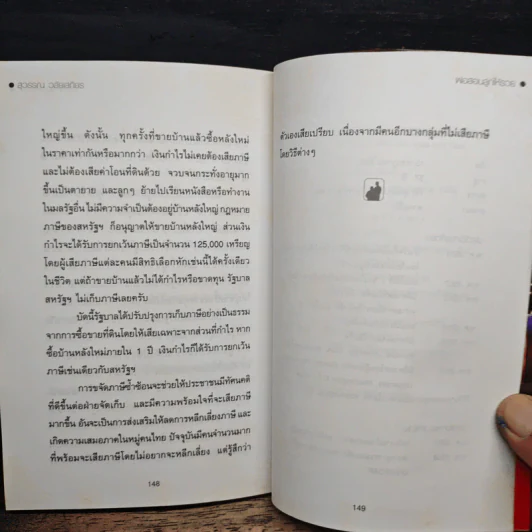 ● สุวรรณ วลัยเสถียร
ใหญ่ขึ้น ดังนั้น ทุกครั้งที่ขายบ้านแล้วซื้อหลังใหม่
ในราคาเท่ากันหรือมากกว่า เงินกำไรไม่เคยต้องเสียภาษี
และไม่ต้องเสียค่าโอนที่ดินด้วย จวบจนกระทั่งอายุมาก
ขึ้นเป็นตายาย และลูกๆ ย้ายไปเรียนหนังสือหรือทำงาน
ในมลรัฐอื่น ไม่มีความจำเป็นต้องอยู่บ้านหลังใหญ่ กฎหมาย
ภาษีของสหรัฐฯ ก็อนุญาตให้ขายบ้านหลังใหญ่ ส่วนเงิน
กำไรจะได้รับการยกเว้นภาษีเป็นจำนวน 125,000 เหรียญ
โดยผู้เสียภาษีแต่ละคนมีสิทธิเลือกหักเช่นนี้ได้ครั้งเดียว
ในชีวิต แต่ถ้าขายบ้านแล้วไม่ได้กำไรหรือขาดทุน รัฐบาล
สหรัฐฯ ไม่เก็บภาษีเลยครับ
บัดนี้รัฐบาลได้ปรับปรุงการเก็บภาษีอย่างเป็นธรรม
จากการซื้อขายที่ดินโดยให้เสียเฉพาะจากส่วนที่กำไร หาก
ซื้อบ้านหลังใหม่ภายใน 1 ปี เงินกำไรก็ได้รับการยกเว้น
ภาษีเช่นเดียวกับสหรัฐฯ
การขจัดภาษีซ้ำซ้อนจะช่วยให้ประชาชนมีทัศนคติ
ที่ดีขึ้นต่อฝ่ายจัดเก็บ และมีความพร้อมใจที่จะเสียภาษี
มากขึ้น อันจะเป็นการส่งเสริมให้ลดการหลีกเลี่ยงภาษี และ
เกิดความเสมอภาคในหมู่คนไทย ปัจจุบันมีคนจำนวนมาก
ที่พร้อมจะเสียภาษีโดยไม่อยากจะหลีกเลี่ยง แต่รู้สึกว่า
148
พ่อสอนลูกให้รวย ●
ตัวเองเสียเปรียบ เนื่องจากมีคนอีกบางกลุ่มที่ไม่เสียภาษี
โดยวิธีต่างๆ
149